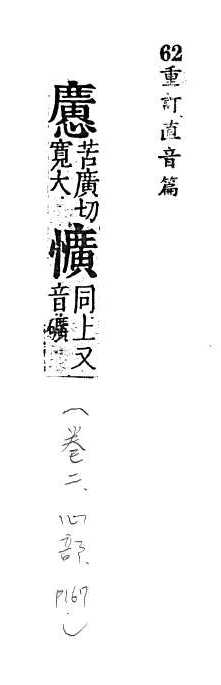 62重訂直音篇
懬苦廣切
寬大
懭同上又
音礦
(卷二、心部、P167.)